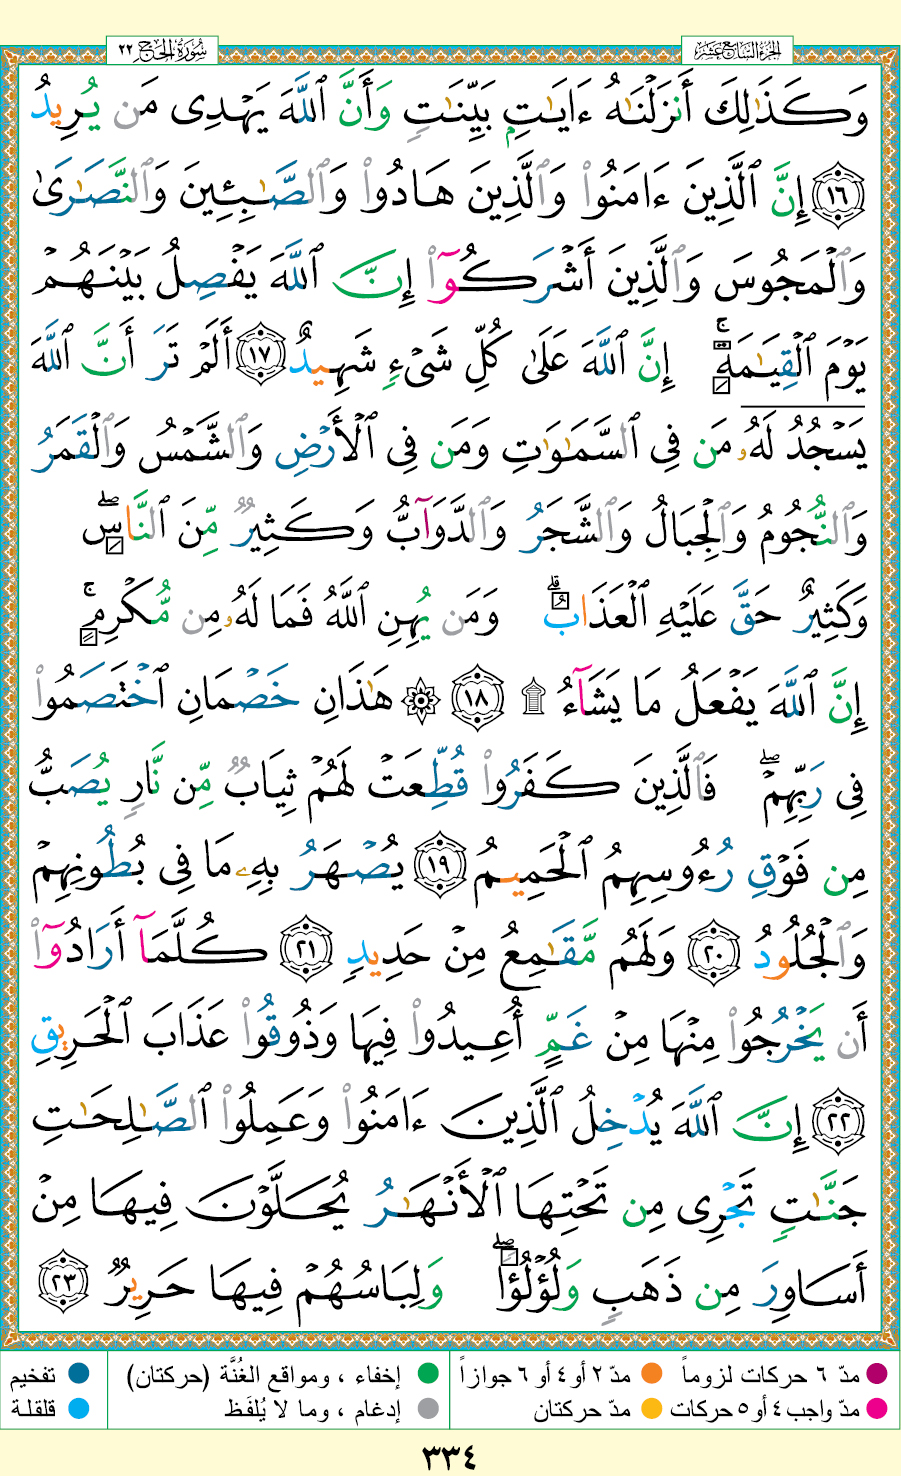 الجزء السابع عشر
سورة الحج ٢٢
وَكَذَٰلِكَ أَنزَلْنَٰهُ ءَايَٰتٍۭ بَيِّنَٰتٍ وَأَنَّ ٱللَّهَ يَهْدِى مَن يُرِيدُ
١٦ إِنَّ ٱلَّذِينَ ءَامَنُوا۟ وَٱلَّذِينَ هَادُوا۟ وَٱلصَّٰبِـِٔينَ وَٱلنَّصَٰرَىٰ
وَٱلْمَجُوسَ وَٱلَّذِينَ أَشْرَكُوٓا۟ إِنَّ ٱللَّهَ يَفْصِلُ بَيْنَهُمْ
يَوْمَ ٱلْقِيَٰمَةِۚ إِنَّ ٱللَّهَ عَلَىٰ كُلِّ شَىْءٍ شَهِيدٌ ١٧ أَلَمْ تَرَ أَنَّ ٱللَّهَ
يَسْجُدُ لَهُۥ مَن فِى ٱلسَّمَٰوَٰتِ وَمَن فِى ٱلْأَرْضِ وَٱلشَّمْسُ وَٱلْقَمَرُ
وَٱلنُّجُومُ وَٱلْجِبَالُ وَٱلشَّجَرُ وَٱلدَّوَآبُّ وَكَثِيرٌ مِّنَ ٱلنَّاسِۖ
وَكَثِيرٌ حَقَّ عَلَيْهِ ٱلْعَذَابُۗ وَمَن يُهِنِ ٱللَّهُ فَمَا لَهُۥ مِن مُّكْرِمٍۚ
إِنَّ ٱللَّهَ يَفْعَلُ مَا يَشَآءُ ۩ ١٨ ۞ هَٰذَانِ خَصْمَانِ ٱخْتَصَمُوا۟
فِى رَبِّهِمْۖ فَٱلَّذِينَ كَفَرُوا۟ قُطِّعَتْ لَهُمْ ثِيَابٌ مِّن نَّارٍ يُصَبُّ
مِن فَوْقِ رُءُوسِهِمُ ٱلْحَمِيمُ ١٩ يُصْهَرُ بِهِۦ مَا فِى بُطُونِهِمْ
وَٱلْجُلُودُ ٢٠ وَلَهُم مَّقَٰمِعُ مِنْ حَدِيدٍ ٢١ كُلَّمَآ أَرَادُوٓا۟
أَن يَخْرُجُوا۟ مِنْهَا مِنْ غَمٍّ أُعِيدُوا۟ فِيهَا وَذُوقُوا۟ عَذَابَ ٱلْحَرِيقِ
٢٢ إِنَّ ٱللَّهَ يُدْخِلُ ٱلَّذِينَ ءَامَنُوا۟ وَعَمِلُوا۟ ٱلصَّٰلِحَٰتِ
جَنَّٰتٍ تَجْرِى مِن تَحْتِهَا ٱلْأَنْهَٰرُ يُحَلَّوْنَ فِيهَا مِنْ
أَسَاوِرَ مِن ذَهَبٍ وَلُؤْلُؤًاۖ وَلِبَاسُهُمْ فِيهَا حَرِيرٌ ٢٣
مدّ ٦ حركات لزوماً مدّ ٢ أو ٤ أو ٦ جوازاً
مدّ واجب ٤ أو ٥ حركات مدّ حركتان
إخفاء ، ومواقع الغُنَّة (حركتان)
إدغام ، وما لا يُلفَظ
تفخيم
قلقلة
٣٣٤